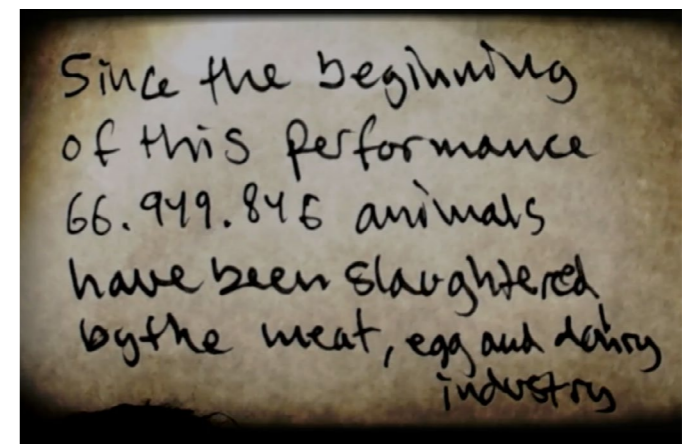 Since the beginning
of this performance
66.949.846 animals
have been slaughtered
by the meat, egg and dairy
industry